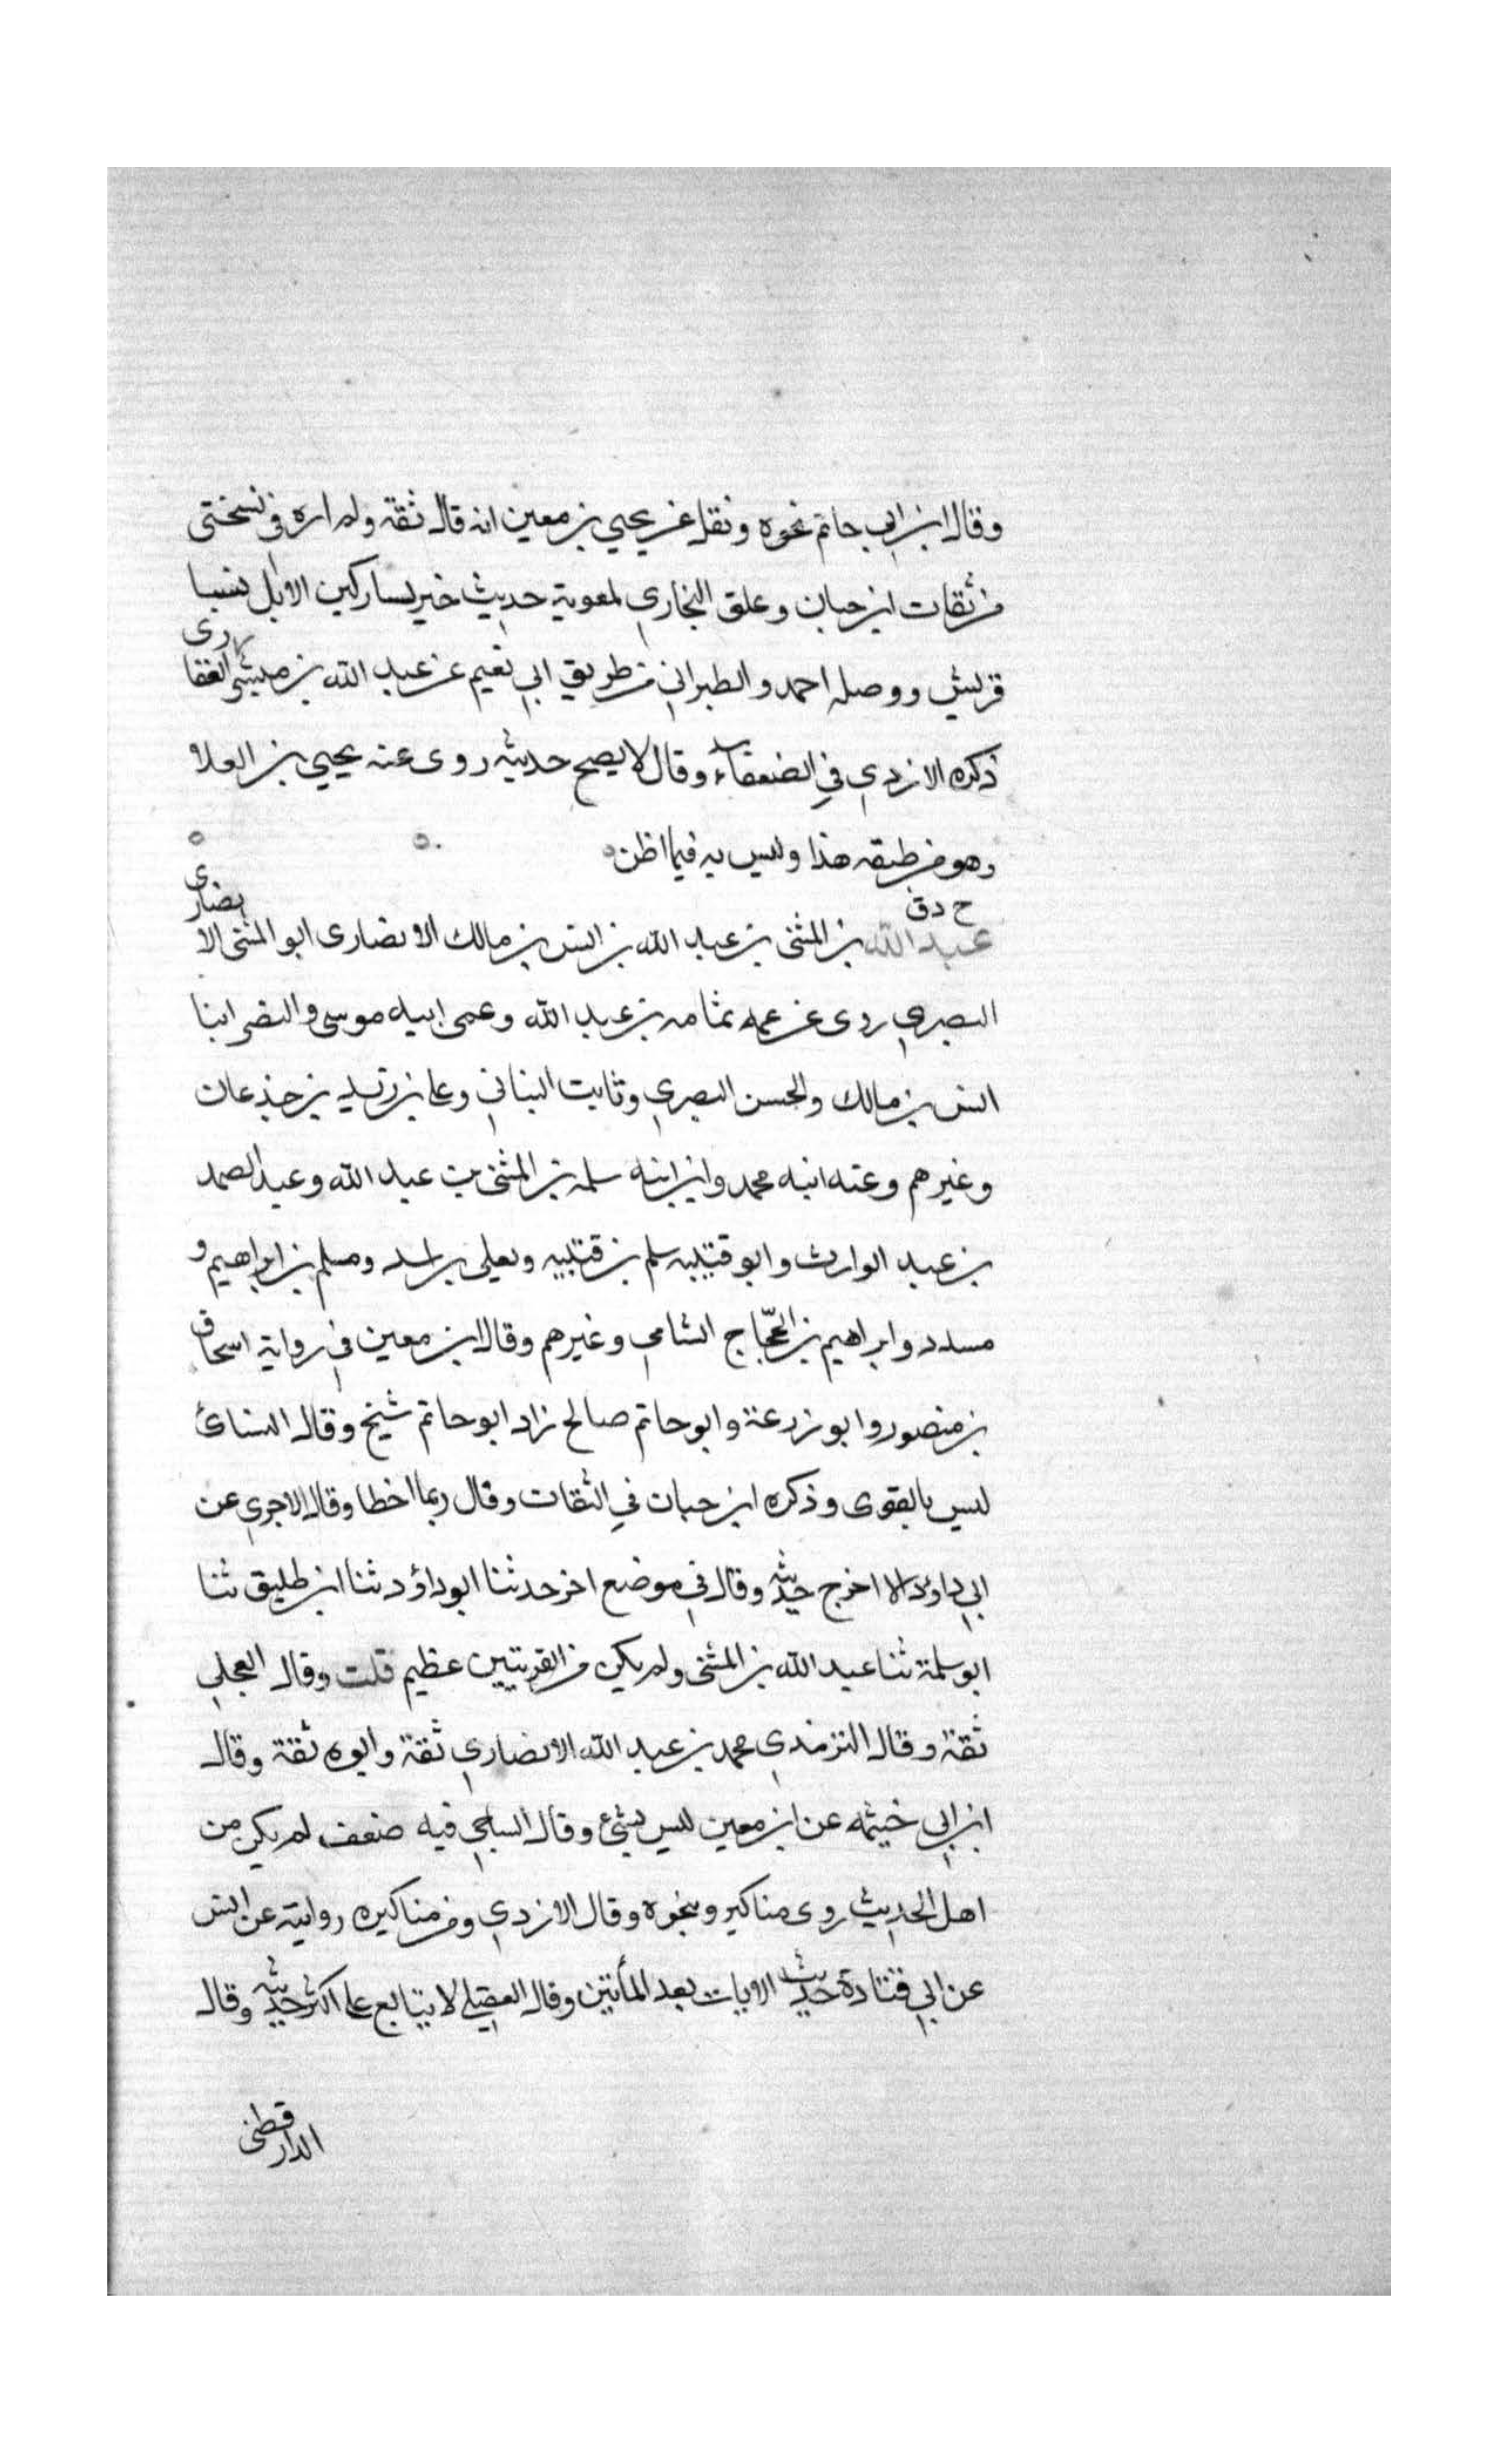 وقال ابن ابي حاتم نحوه ونقل عن يحيي بن معين انه قال ثقة ولم اره في نسختي
من ثقات ابن حبان وعلق البخاري لمعوية حديث خير نسا ركبن الابل نسا
قريش ووصله احمد والطبراني من طريق ابي نعيم عن عبد الله بن مبشر الغفاري
ذكره الازدي في الضعفاء وقال لا يصح حديثه روى عنه يحيي بن العلا
وهو من طبقه هذا وليس به فيما اظن
خ د ق
عبد الله بن المثنى بن عبد الله بن انس بن مالك الانصارى ابو المثنى الانصارى
البصري روى عن عمه ثمامه بن عبد الله وعمى ابيه موسى والنضر ابنا
انس بن مالك والحسن البصري وثابت البناني وعلي بن زيد بن جذعان
وغيرهم وعنه ابنه محمد وابن ابنه سلمه بن المثنى بن عبد الله وعبد الصمد
بن عبد الوارث وابو قتيبه سلم بن قتيبه ومعلى بن اسد ومسلم بن ابراهيم و
مسدد وابراهيم بن الحجّاج الشامي وغيرهم وقال ابن معين في رواية اسحاق
بن منصور وابو زرعة وابو حاتم صالح زاد ابو حاتم شيخ وقال النسائ
ليس بالقوى وذكره ابن حبان في الثقات وقال ربما اخطا وقال الاجري عن
ابي داؤد لا اخرج حديثه وقال في موضع اخر حدثنا ابو داؤد ثنا ابن طليق ثنا
ابو سلمة ثنا عبد الله بن المثنى ولم يكن من القريتين عظيم قلت وقال العجلي
ثقة وقال الترمذي محمد بن عبد الله الانصاري ثقة وابوه ثقة وقال
ابن ابي خيثمه عن ابن معين ليس بشئ وقال الساجي فيه ضعف لم يكن من
اهل الحديث روى مناكير وبنحوه وقال الازدي ومن مناكيره روايته عن انس
عن ابي قتادة حديث الايات بعد المأتين وقال العقيلي لا يتابع على اكثر حديثه وقال
الدارقطنى